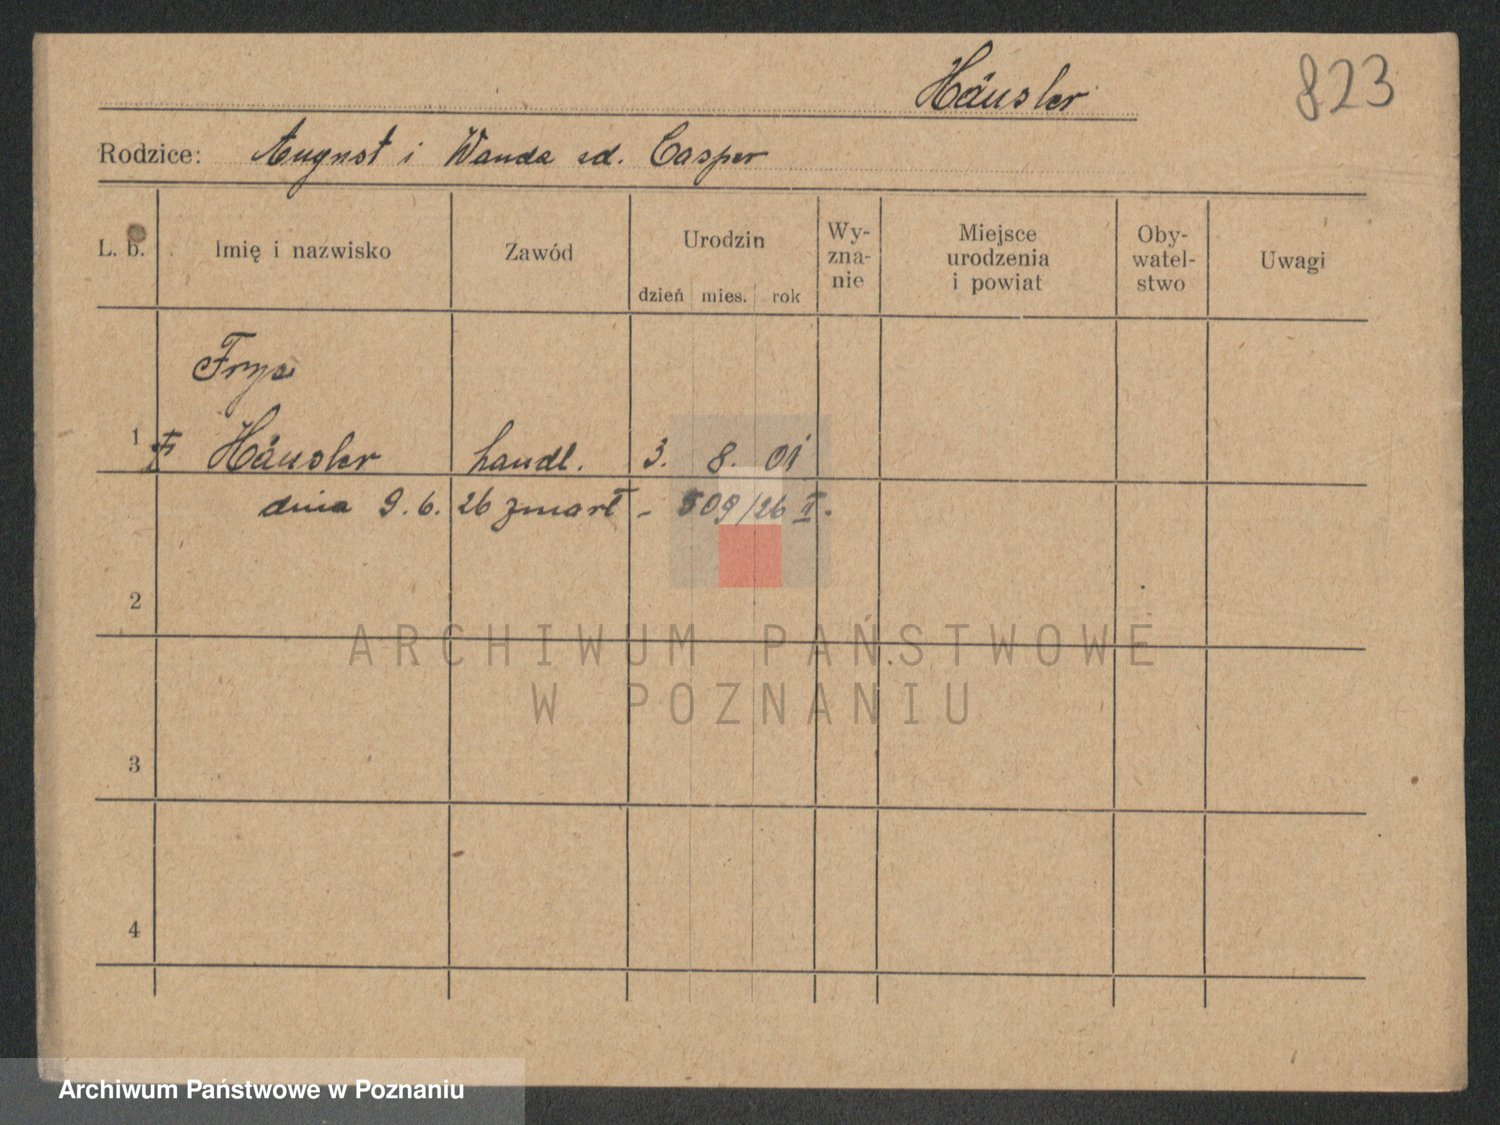 Häusler
823
Rodzice: August i Wanda zd. Casper
L. b. Imię i nazwisko Zawód Urodzin dzień mies. rok Wy-zna-nie Miejsce urodzenia i powiat Oby-watel-stwo Uwagi
Fryc
1 Häusler handl. 3. 8. 01
dnia 9. 6. 26 zmarł - 809/26 II.
2
ARCHIWUM PAŃSTWOWE
W POZNANIU
3
4
Archiwum Państwowe w Poznaniu